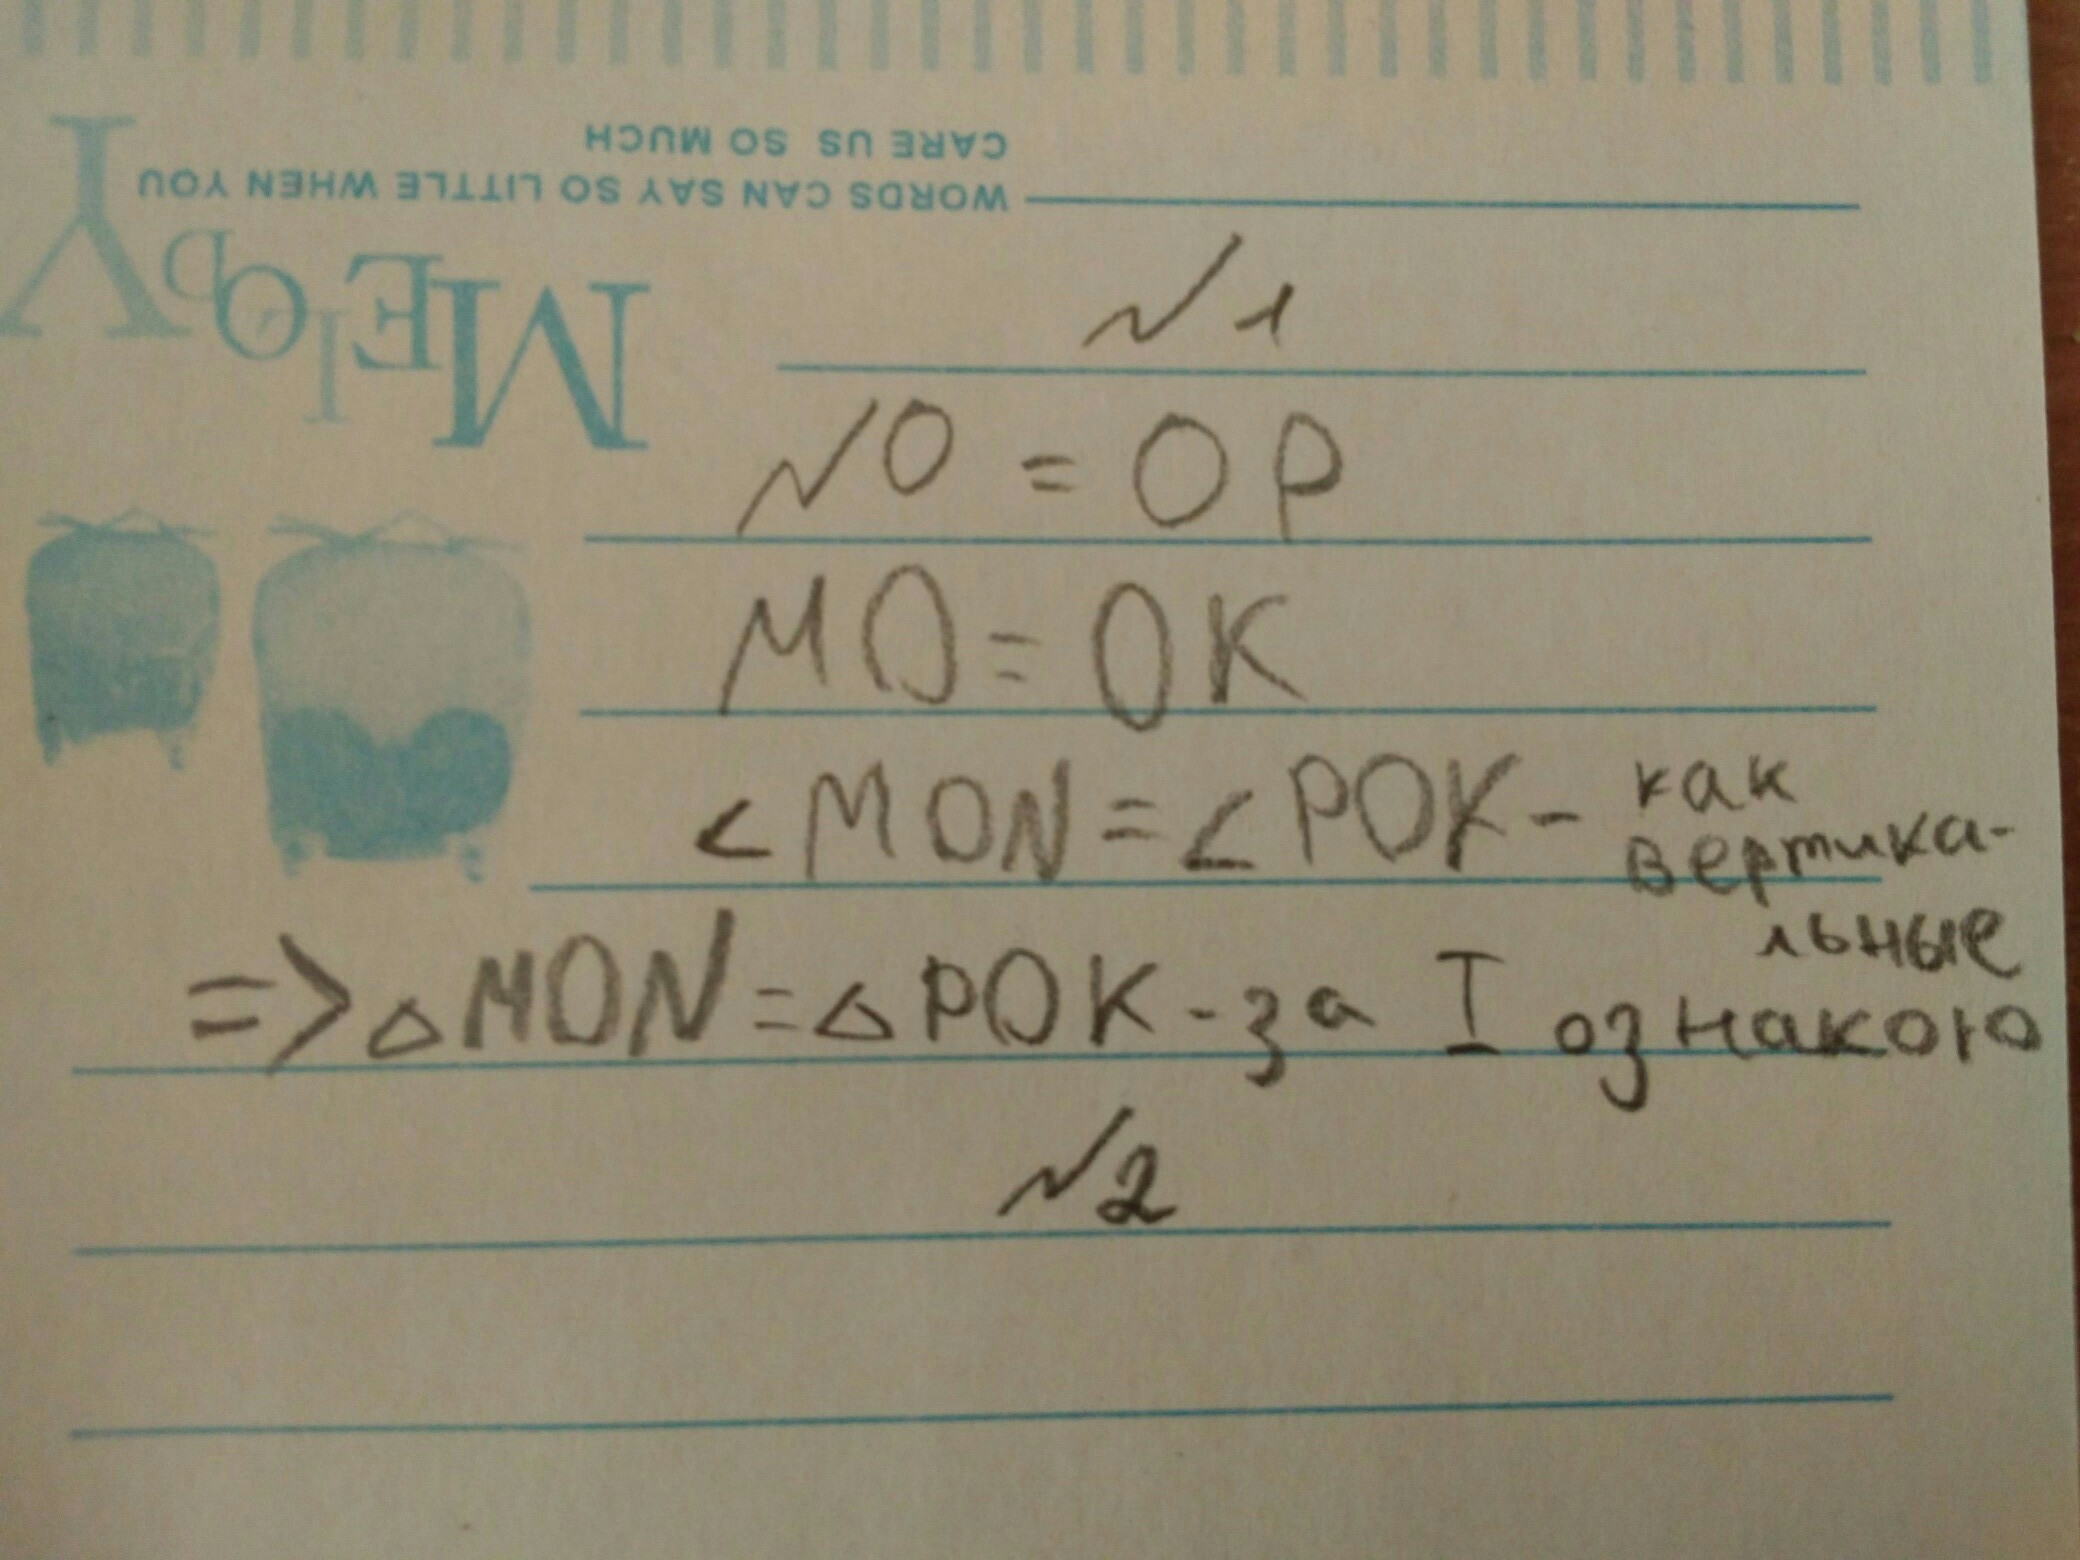 CARE US SO MUCH
WORDS CAN SAY SO LITTLE WHEN YOU
MElODY
№1
NO = OP
MO = OK
<MON = <POK - как
вертика-
льные
=> △MON = △POK - за I ознакою
№2